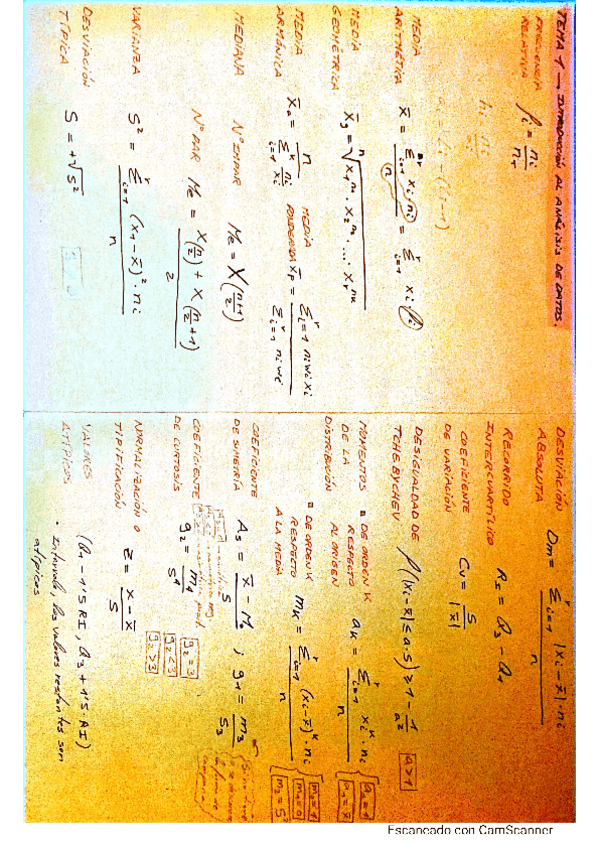 TEMA 1 → INTRODUCCIÓN AL ANÁLISIS DE DATOS.
FRECUENCIA RELATIVA fi = ni / nT
MEDIA ARITMÉTICA x̄ = Σ xi·ni / n = Σ xi fi
MEDIA GEOMÉTRICA x̄g = ⁿ√(x1^n1 · x2^n2 · ... · xr^nr)
MEDIA ARMÓNICA x̄a = n / Σ ni/xi
MEDIA PONDERADA x̄p = Σ ni wi xi / Σ ni wi
MEDIANA Nº IMPAR Me = X((n+1)/2)
Nº PAR Me = (X(n/2) + X(n/2 + 1)) / 2
VARIANZA S² = Σ (x1 - x̄)² · ni / n
DESVIACIÓN TÍPICA S = +√S²
DESVIACIÓN ABSOLUTA Dm = Σ |xi - x̄| · ni / n
RECORRIDO INTERCUARTÍLICO RI = Q3 - Q1
COEFICIENTE DE VARIACIÓN CV = S / |x̄|
DESIGUALDAD DE TCHEBYCHEV P(|xi - x̄| ≤ a·S) ≥ 1 - 1/a² a>1
MOMENTOS DE LA DISTRIBUCIÓN
▪ DE ORDEN K RESPECTO AL ORIGEN aK = Σ xi^K · ni / n
▪ DE ORDEN K RESPECTO A LA MEDIA mK = Σ (xi - x̄)^K · ni / n
COEFICIENTE DE SIMETRÍA As = (x̄ - Mo) / S ; g1 = m3 / S3
COEFICIENTE DE CURTOSIS g2 = m4 / S⁴
g2 = 3
g2 < 3
g2 > 3
NORMALIZACIÓN O TIPIFICACIÓN z = (x - x̄) / S
VALORES ATÍPICOS (Q1 - 1'5 RI, Q3 + 1'5 RI)
• Intervalo, los valores restantes son atípicos
Escaneado con CamScanner